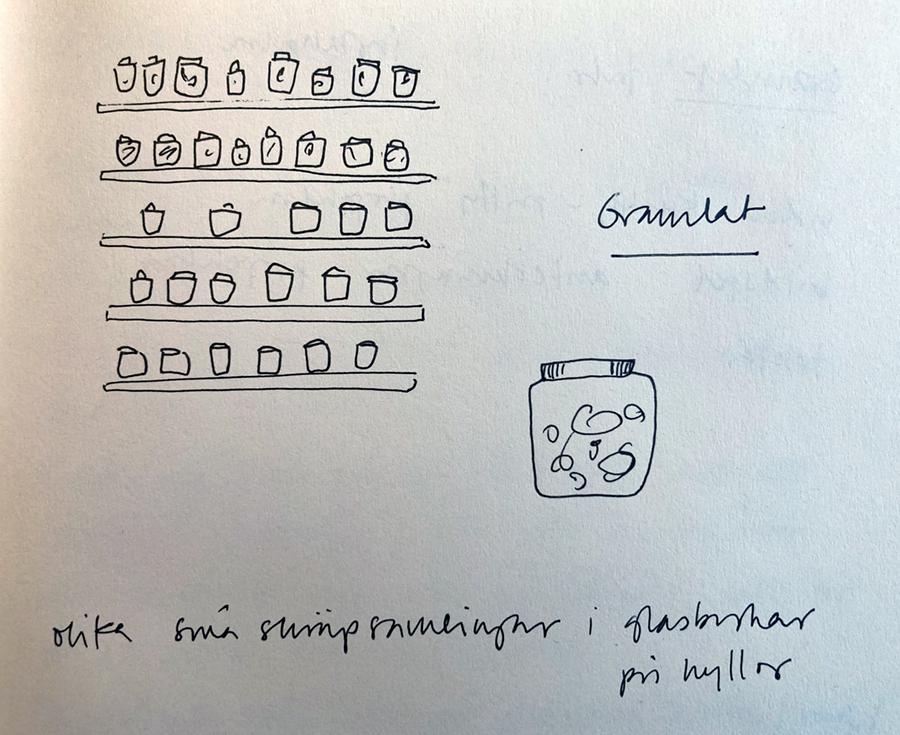 Granulat
olika små skräpsamlingar i glasburkar
på hyllor